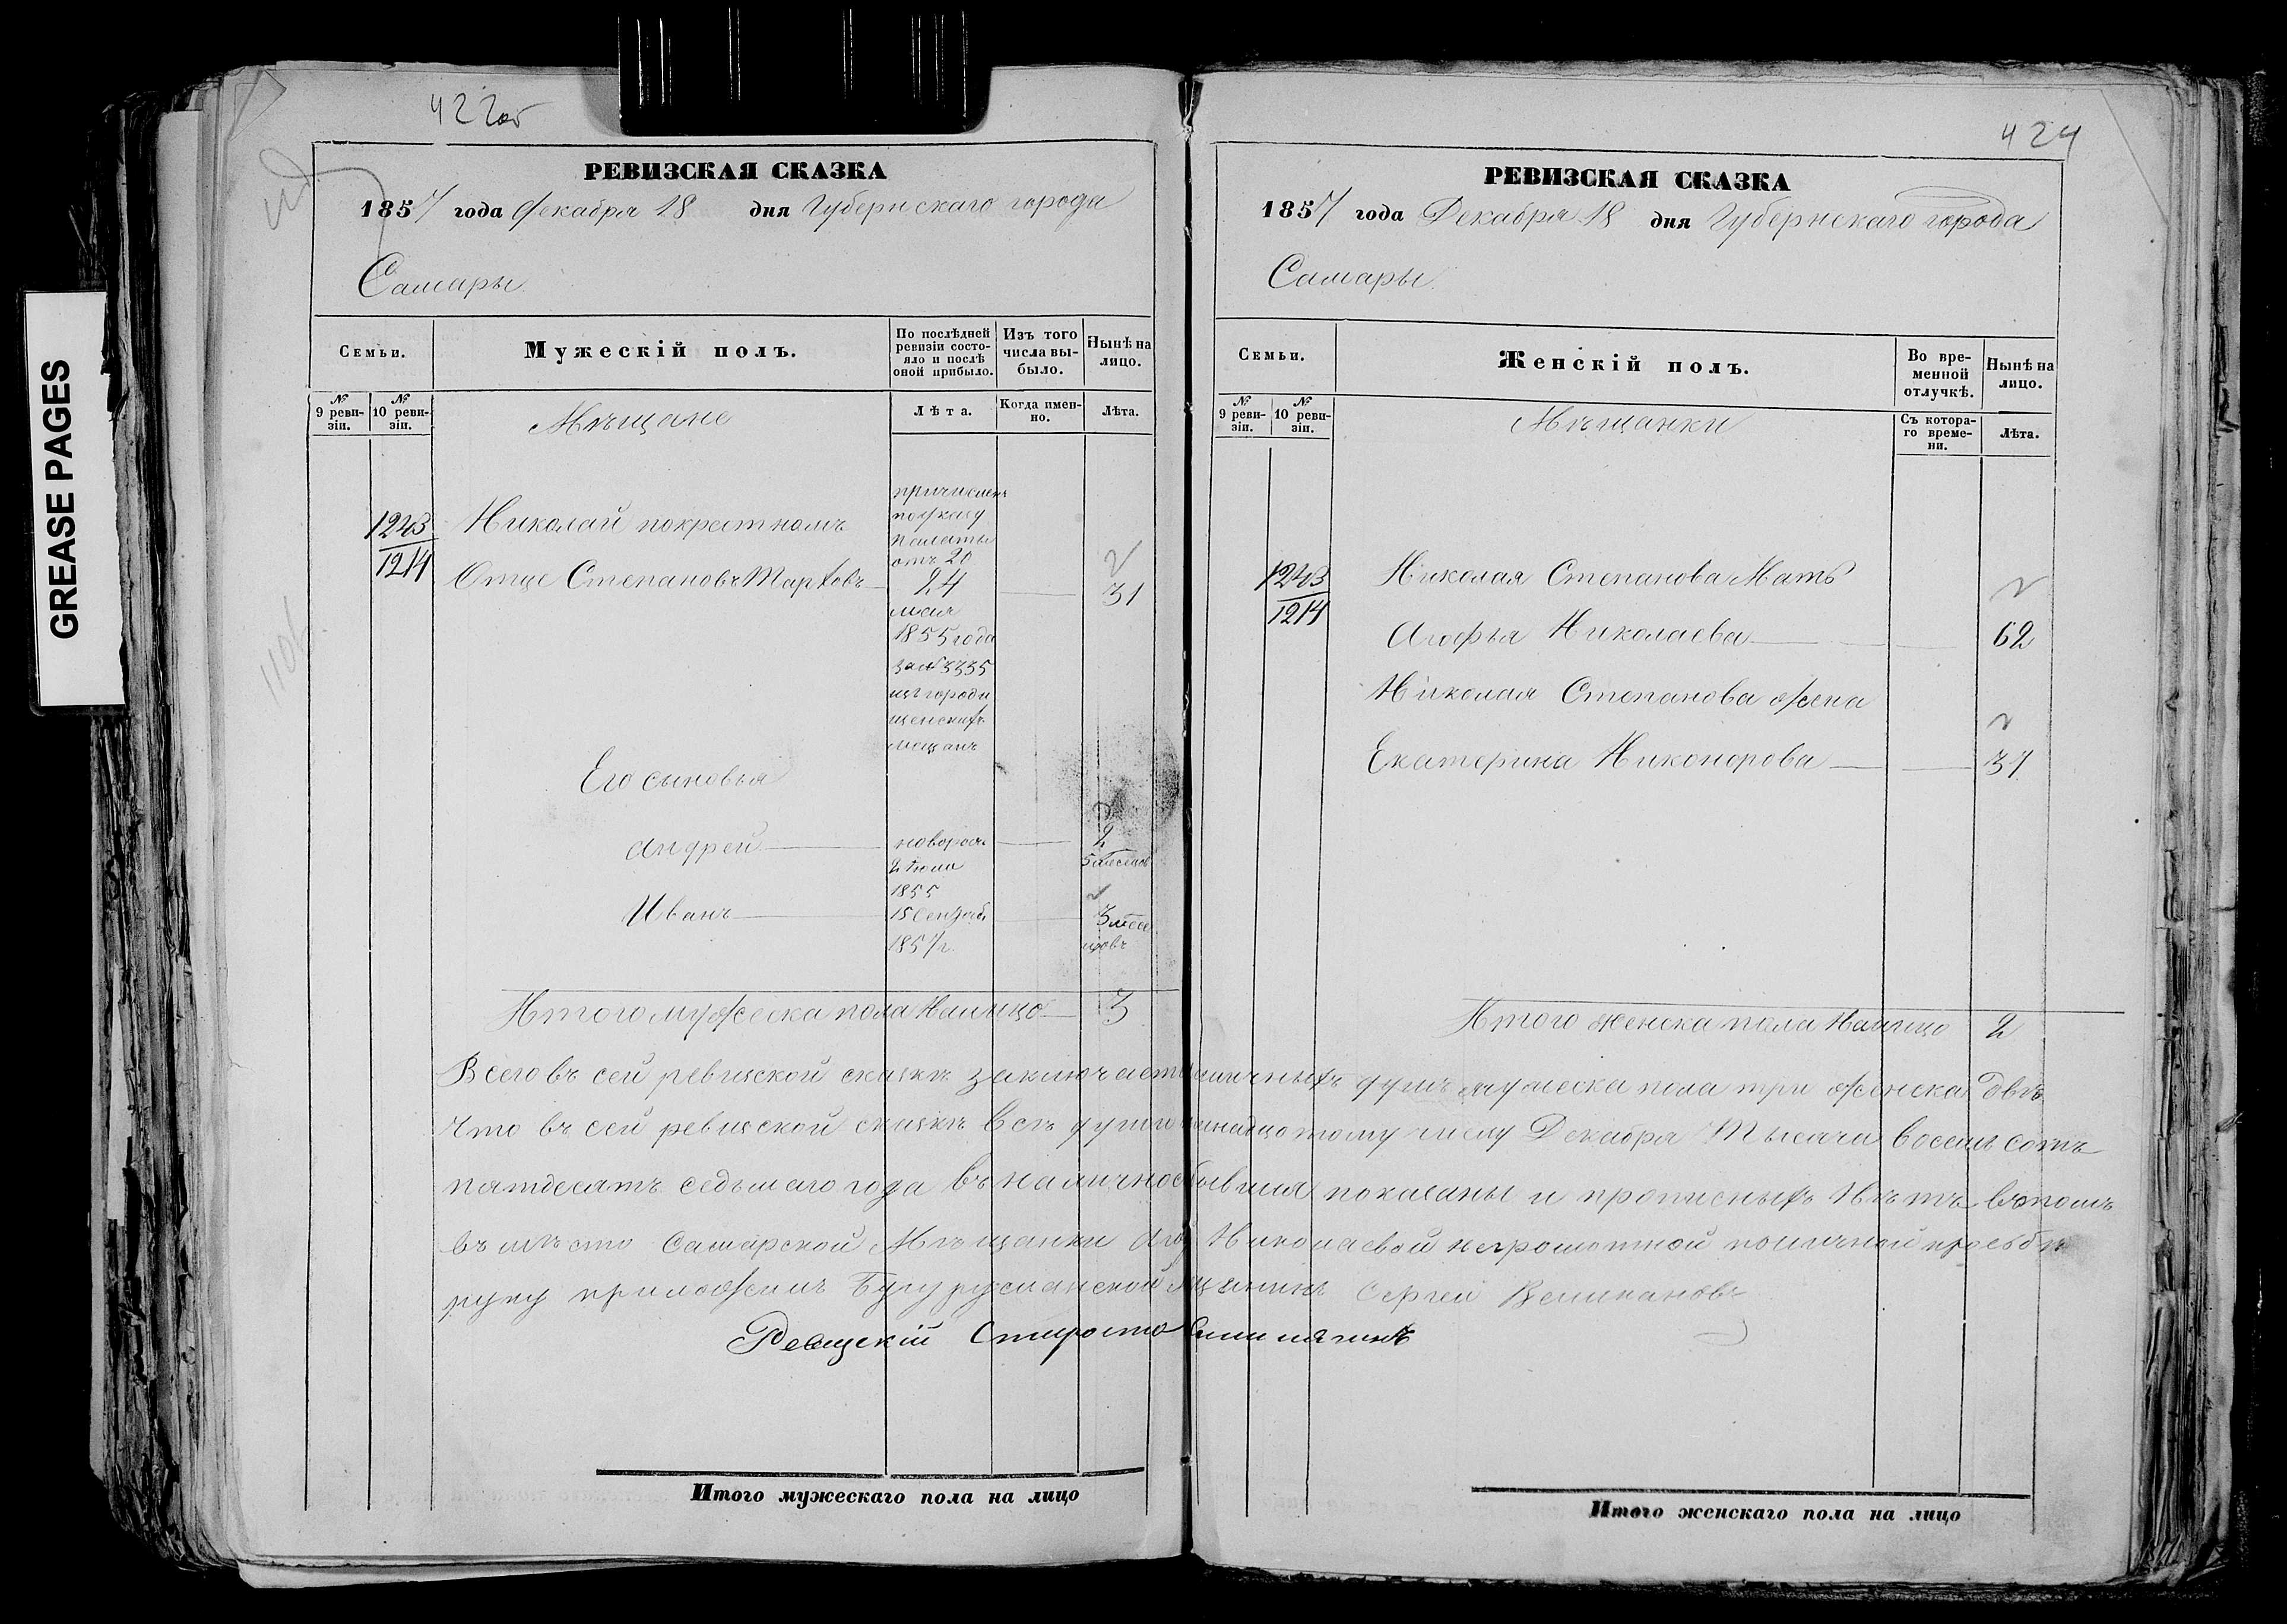 GREASE PAGES
422об
РЕВИЗСКАЯ СКАЗКА
1857 года Декабря 18 дня Губернскаго города
Самары
Семьи.
Мужескій полъ.
По послѣдней ревизіи состо-
яло и послѣ
оной прибыло.
Изъ того
числа вы-
было.
Нынѣ на
лицо.
№
9 реви-
зіи.
№
10 реви-
зіи.
Мѣщане
Лѣта.
Когда имен-
но.
Лѣта.
1243
1214
Николай покрестномъ
Отце Степановъ
причисленъ
по указу
палаты
отъ 20
24
31
мая
1855 года
за № 3335
изъ города
мещанъ
Его сыновья
Андрей
новорож
2
2 Июля
1855
5 месяцов
Иванъ
15 Сентяб
1857 г.
3 меся
цовъ
Итого мужеска пола Налицо 3
424
РЕВИЗСКАЯ СКАЗКА
1857 года Декабря 18 дня Губернскаго города
Самары
Семьи.
Женскій полъ.
Во вре-
менной
отлучкѣ.
Нынѣ на
лицо.
№
9 реви-
зіи.
№
10 реви-
зіи.
Мѣщанки
Съ котора-
го време-
ни.
Лѣта.
1243
1214
Николая Степанова Мать
Агафья Николаева 62
Николая Степанова жена
Екатерина Никонорова 37
Итого женска пола Налицо 2
Всего въ сей ревизской сказкѣ заключается наличныхъ душъ мужеска пола три женска двѣ
Что въ сей ревизской сказкѣ всѣ души тому числу Декабря Тысяча восемь сотъ
пятдесятъ седьмаго года въ показаны и прописныхъ Нѣтъ вътомъ
въ мѣсто Самарской Мѣщанки Николаевой неграмотной поличной прозьбѣ
руку приложилъ Бугурусланской Сергей
Ревизскій Староста
Итого мужескаго пола на лицо
Итого женскаго пола на лицо